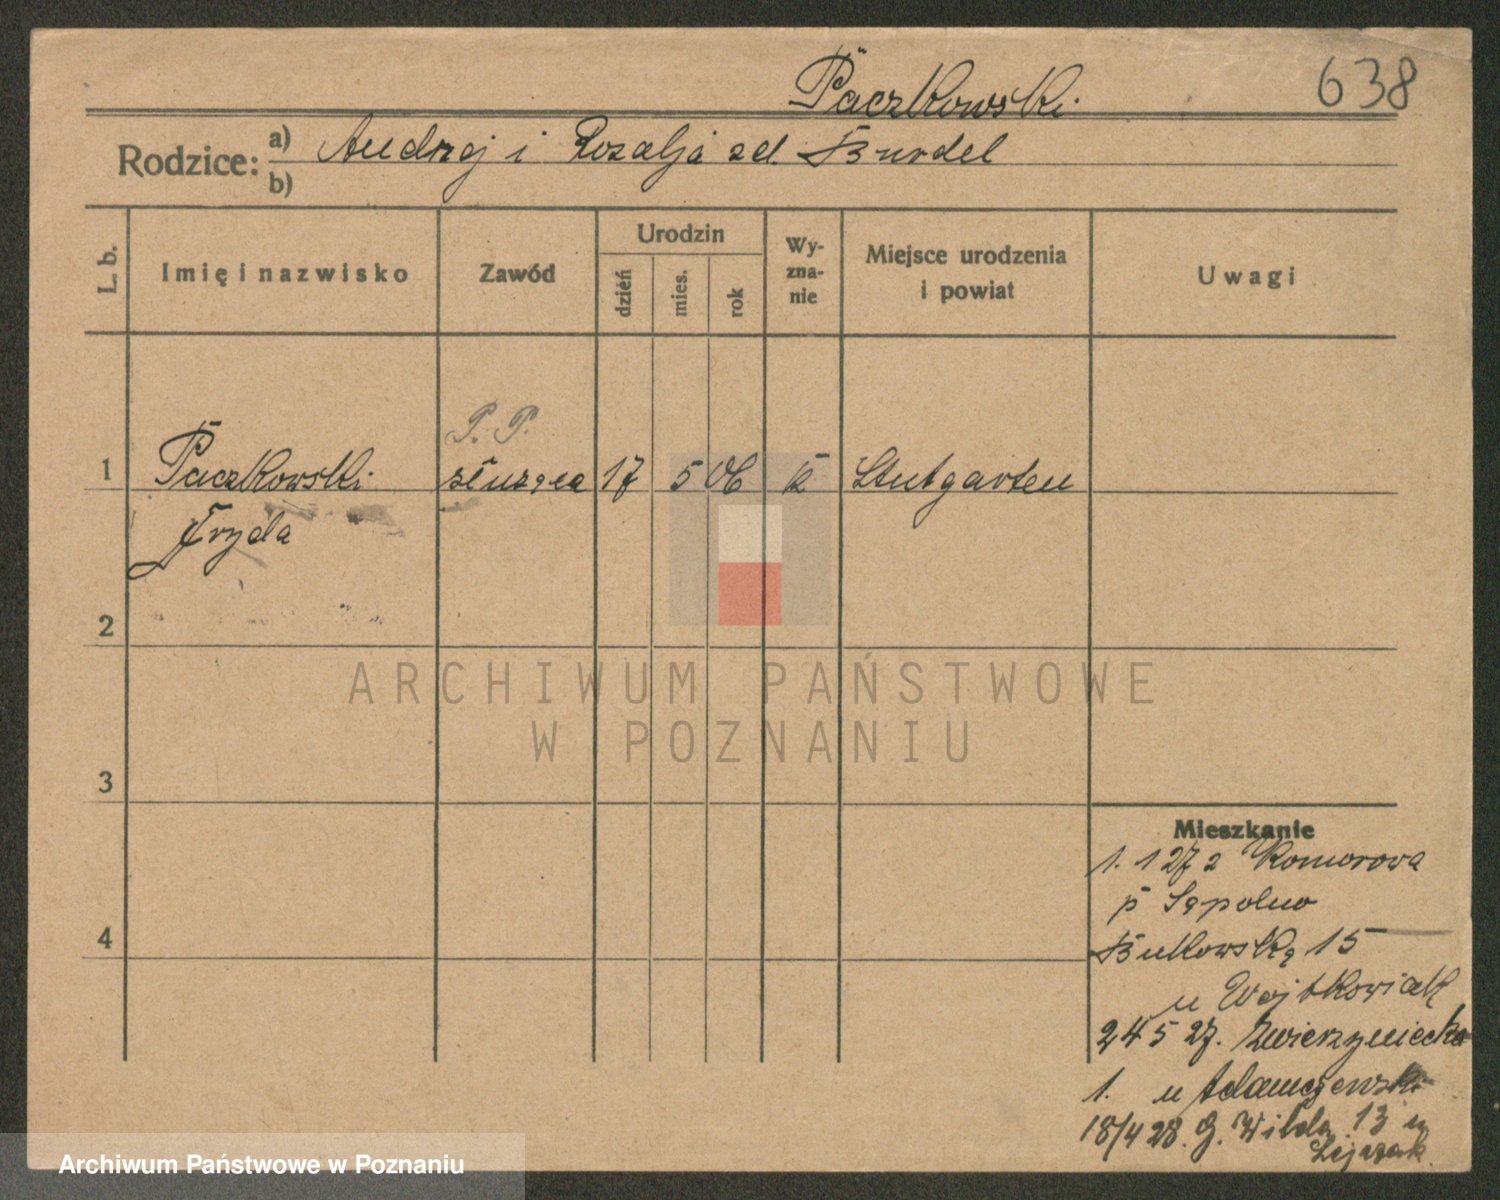 Paczkowski
638
Rodzice: a) Andrzej i Rozalja zd. Burdel
b)
L. b.
Imię i nazwisko
Zawód
Urodzin
dzień
mies.
rok
Wy-
zna-
nie
Miejsce urodzenia
i powiat
Uwagi
P. P.
1 Paczkowski służąca 17 5 06 k Stutgarten
Fryda
2
3
4
Mieszkanie
1. 1 27 z Komorowa
p Sępolno
Bukowska 15
u Wojtkowiak
24 5 27. Zwierzyniecka
1. u Adamczewski
18/4 28. G. Wilda 13 u
ARCHIWUM PAŃSTWOWE
W POZNANIU
Archiwum Państwowe w Poznaniu